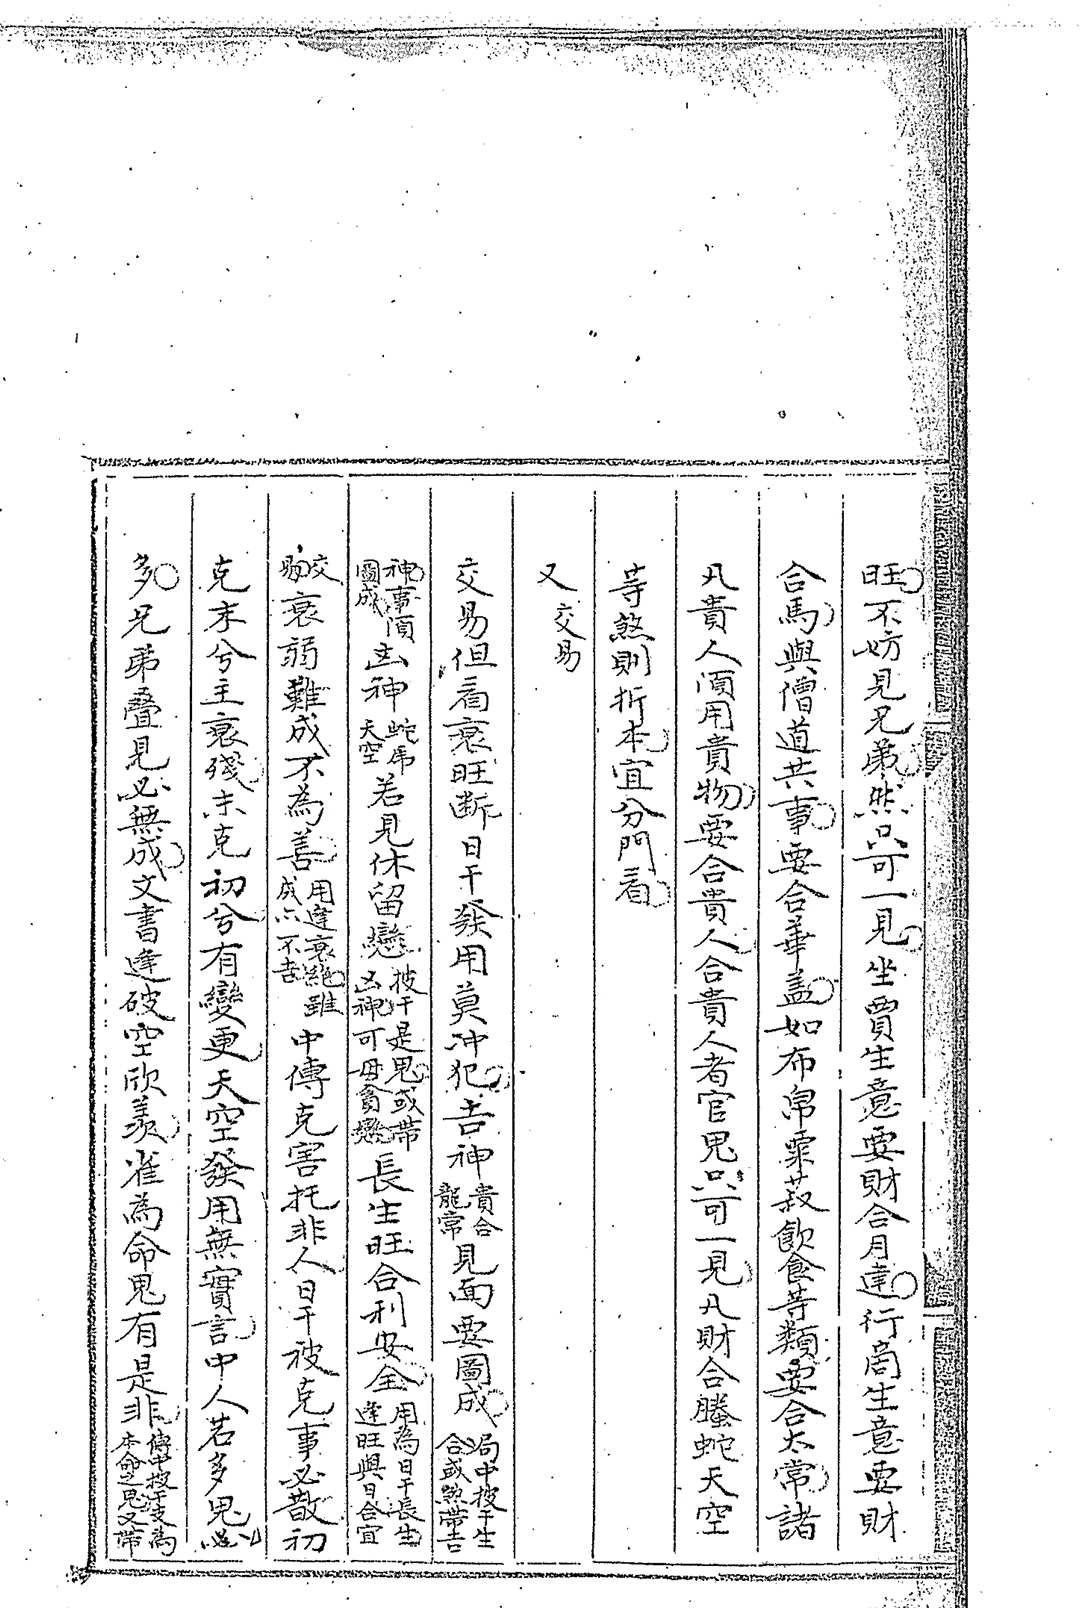 旺不妨見兄弟然只可一見坐賈生意要財合月建行商生意要財
合馬與僧道共事要合華盖如布帛粟菽飲食等類要合太常諸
凡貴人須用貴物要合貴人合貴人者官鬼只可一見凡財合螣蛇天空
等煞則折本宜分門看
又交易
交易但看衰旺斷日干發用莫冲犯吉神貴合龍常見面要圖成局中披干生合或煞帶吉
神事須圖成凶神蛇虎天空若見休留戀披干是鬼或帶凶神可毋貪戀長生旺合利安全用為日干長生逢旺與日合宜
交易衰弱難成不為善用逢衰絕雖成亦不吉中傳克害托非人日干被克事必散初
克末兮主衰殘末克初兮有變更天空發用無實言中人若多鬼必
多兄弟疊見必無成文書逢破空欣羨雀為命鬼有是非傳中披干支為本命之鬼又帶